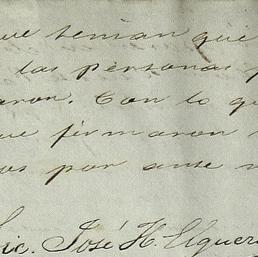 ue tenian que
las personas
aron. Con lo q
ue firmaron
os por ante
Lic. José H. Elguer